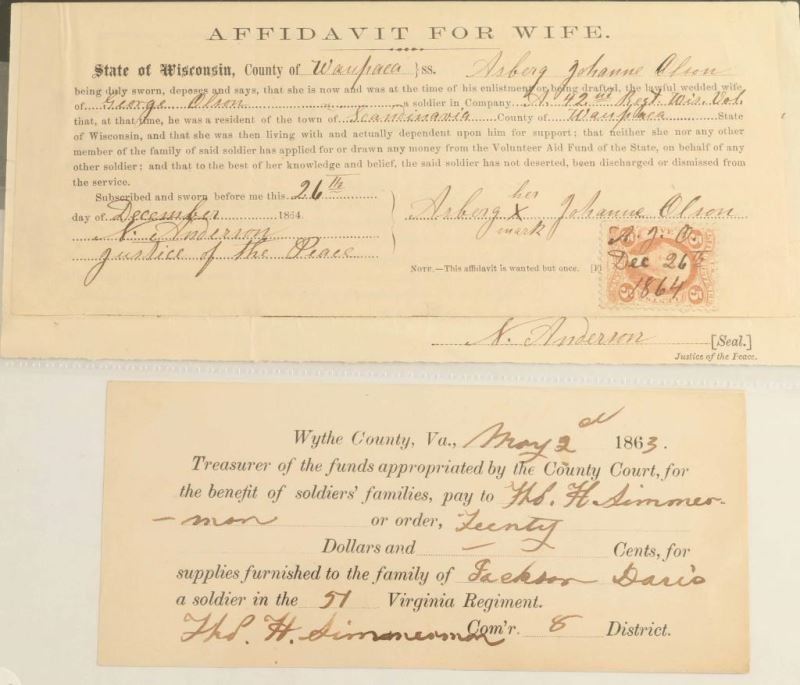 AFFIDAVIT FOR WIFE.
State of Wisconsin, County of Waupaca } ss. Asberg Johanne Olson
being duly sworn, deposes and says, that she is now and was at the time of his enlistment or being drafted, the lawful wedded wife
of George Olson a soldier in Company "A" 42nd Regt. Wis. Vol.
that, at that time, he was a resident of the town of Scandinavia County of Waupaca State
of Wisconsin, and that she was then living with and actually dependent upon him for support; that neither she nor any other
member of the family of said soldier has applied for or drawn any money from the Volunteer Aid Fund of the State, on behalf of any
other soldier; and that to the best of her knowledge and belief, the said soldier has not deserted, been discharged or dismissed from
the service.
Subscribed and sworn before me this 26th
day of December 1864.
N. Anderson
Justice of the Peace
her
Asberg X Johanne Olson
mark
NOTE.—This affidavit is wanted but once.
A. J. O.
Dec 26th
1864
5 5
N. Anderson [Seal.]
Justice of the Peace.
Wythe County, Va., May 2d 1863.
Treasurer of the funds appropriated by the County Court, for
the benefit of soldiers' families, pay to Tho. H. Simmer-
-man or order, Twenty
Dollars and — — Cents, for
supplies furnished to the family of Jackson Davis
a soldier in the 51 Virginia Regiment.
Tho. H. Simmerman Com'r. 8 District.